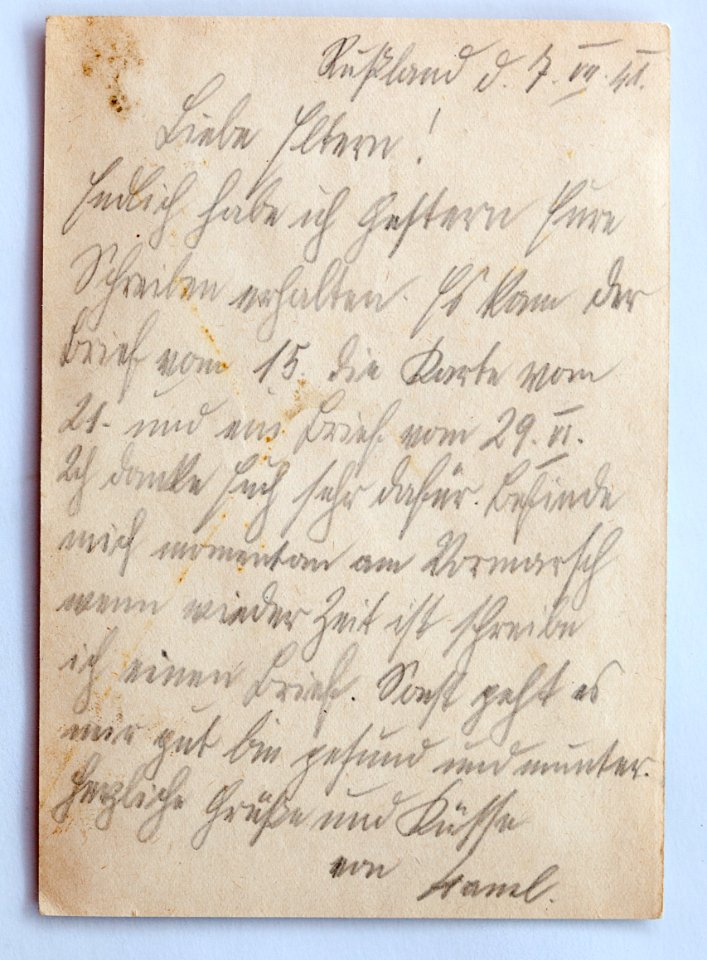 Rußland d. 7. VII. 41.
Liebe Eltern!
Endlich habe ich Gestern Eure
Schreiben erhalten. Es kam der
Brief vom 15. die Karte vom
21. und ein Brief vom 29. VI.
Ich danke Euch sehr dafür. Befinde
mich momentan am Vormarsch
wenn wieder Zeit ist schreibe
ich einen Brief. Sonst geht es
mir gut bin gesund und munter.
Herzliche Grüße und Küsse
von